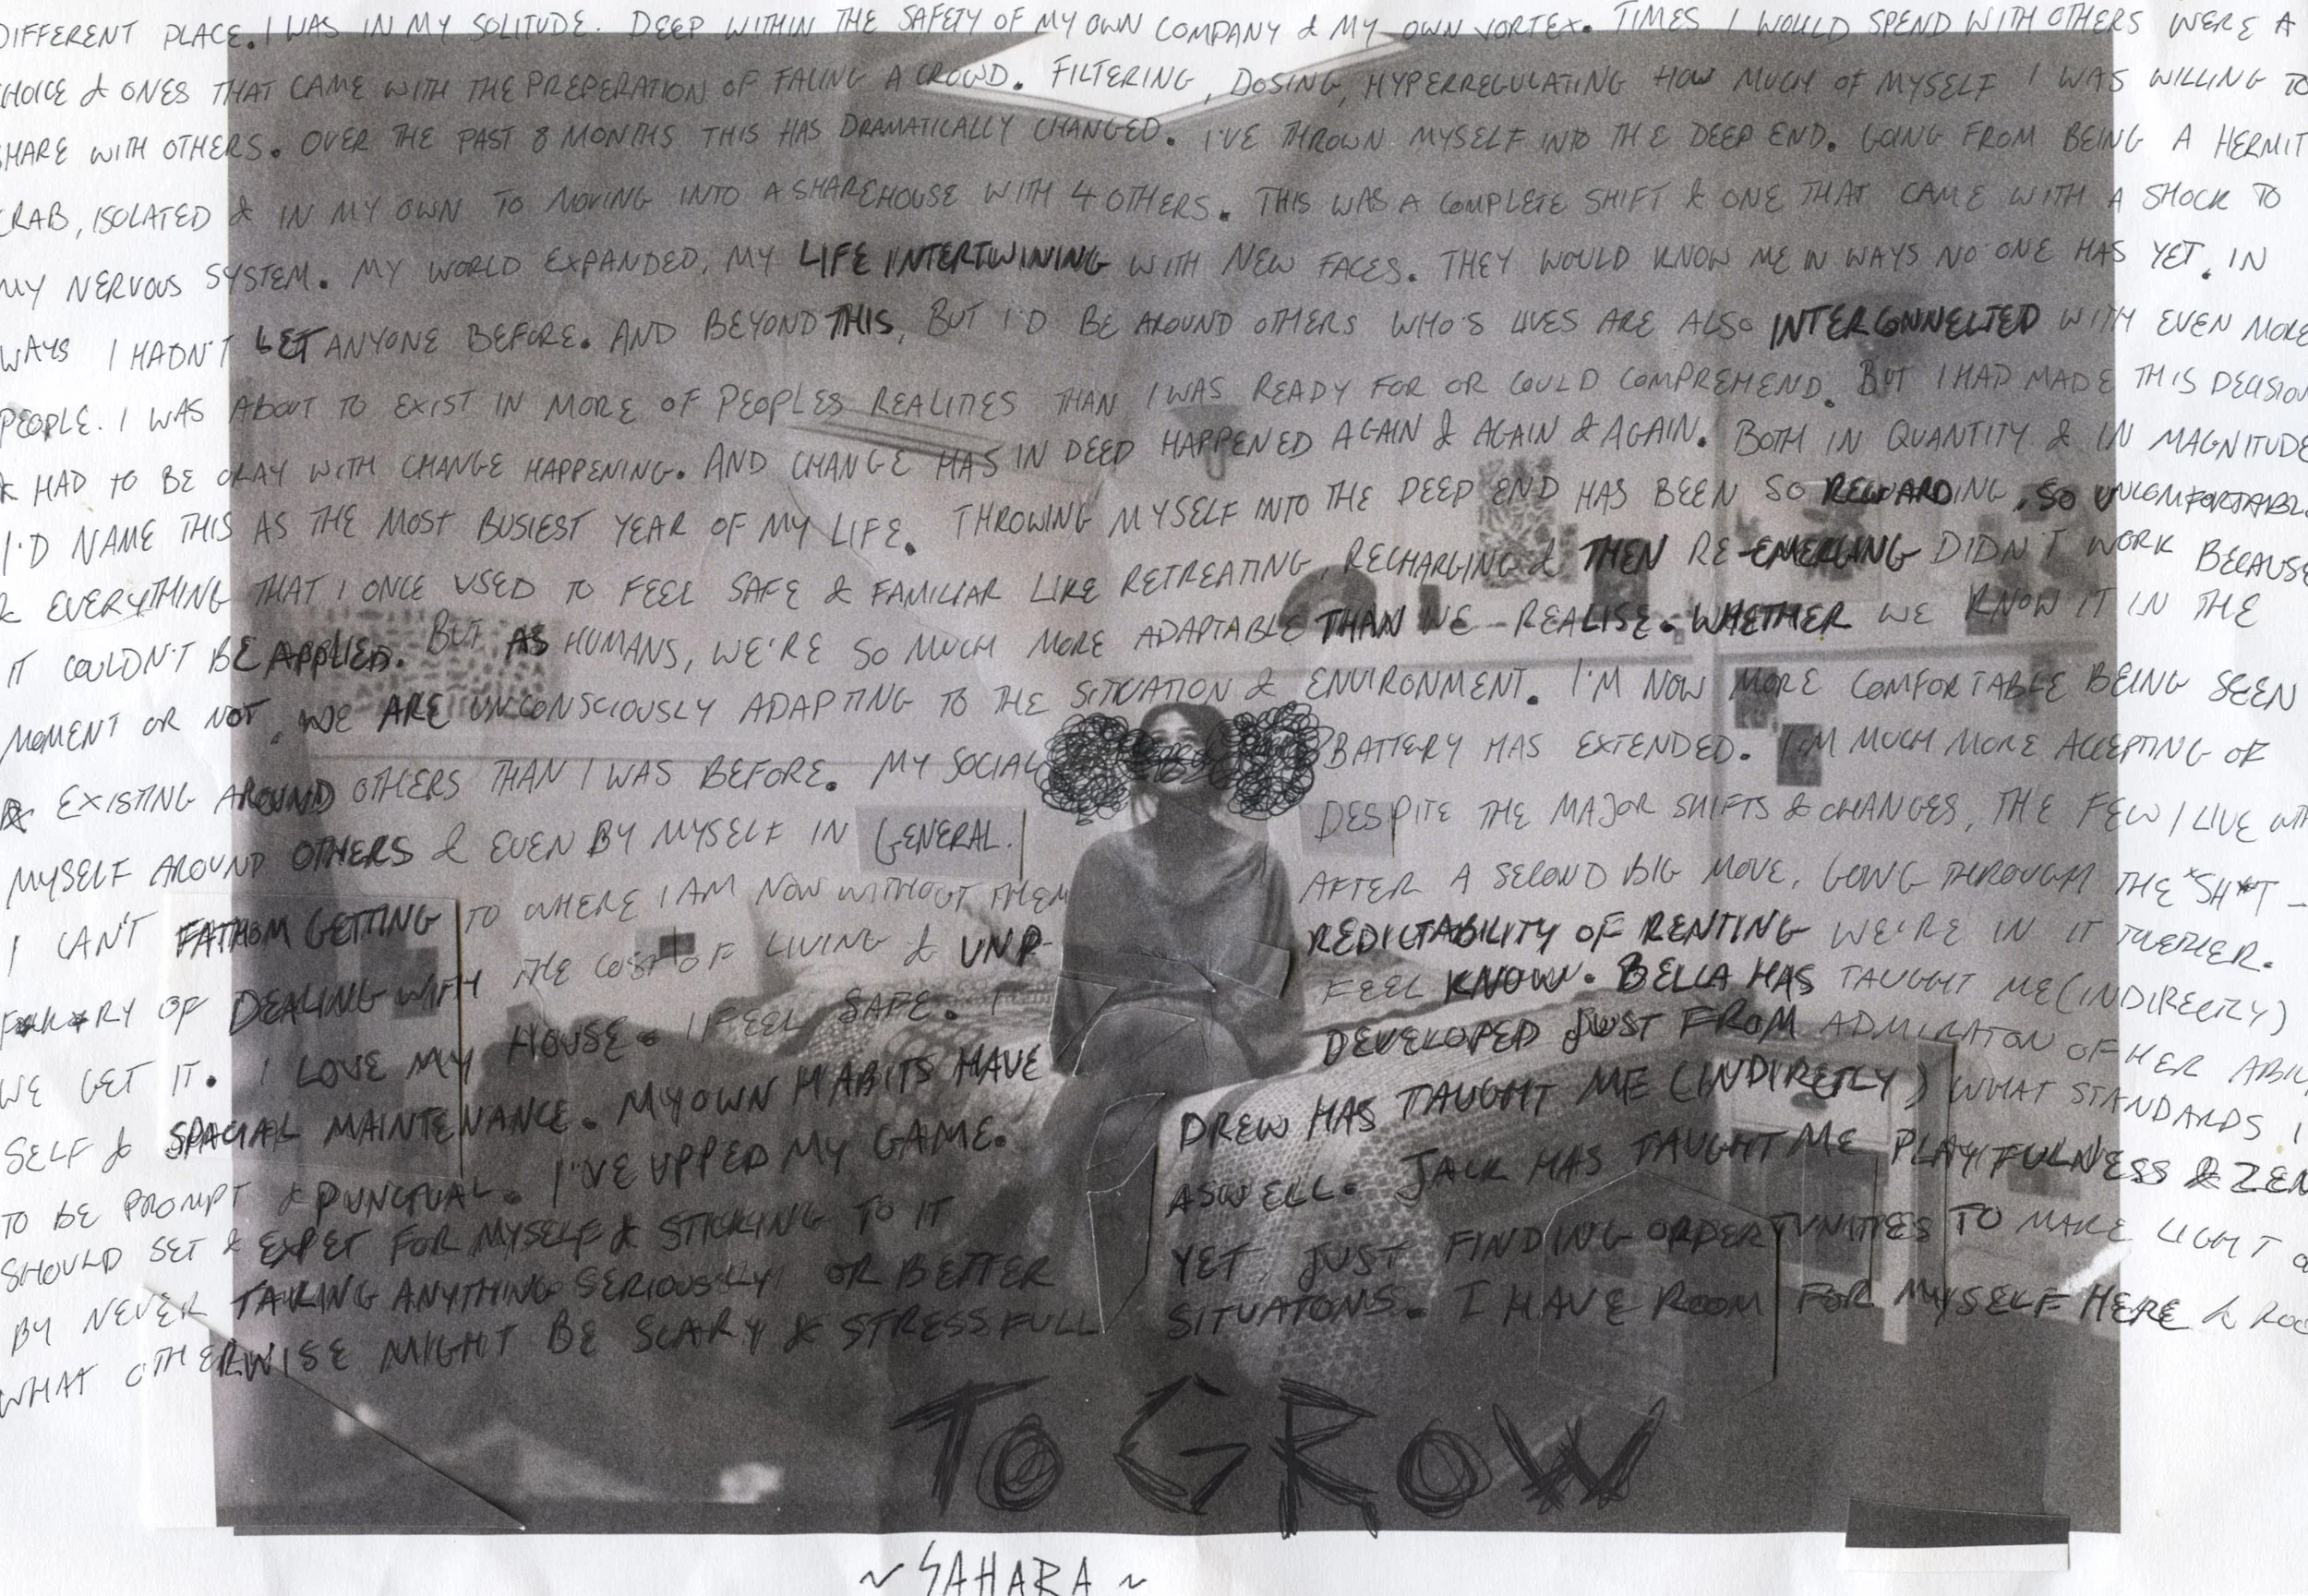 DIFFERENT PLACE. I WAS IN MY SOLITUDE. DEEP WITHIN THE SAFETY OF MY OWN COMPANY & MY OWN VORTEX. TIMES I WOULD SPEND WITH OTHERS WERE A
HOICE & ONES THAT CAME WITH THE PREPERATION OF FACING A CROWD. FILTERING, DOSING, HYPERREGULATING HOW MUCH OF MYSELF I WAS WILLING TO
SHARE WITH OTHERS. OVER THE PAST 8 MONTHS THIS HAS DRAMATICALLY CHANGED. I'VE THROWN MYSELF INTO THE DEEP END. GOING FROM BEING A HERMIT
CRAB, ISOLATED & IN MY OWN TO MOVING INTO A SHAREHOUSE WITH 4 OTHERS. THIS WAS A COMPLETE SHIFT & ONE THAT CAME WITH A SHOCK TO
MY NERVOUS SYSTEM. MY WORLD EXPANDED, MY LIFE INTERTWINING WITH NEW FACES. THEY WOULD KNOW ME IN WAYS NO ONE HAS YET. IN
WAYS I HADN'T LET ANYONE BEFORE. AND BEYOND THIS, BUT I'D BE AROUND OTHERS WHO'S LIVES ARE ALSO INTERCONNECTED WITH EVEN MORE
PEOPLE. I WAS ABOUT TO EXIST IN MORE OF PEOPLES REALITIES THAN I WAS READY FOR OR COULD COMPREHEND. BUT I HAD MADE THIS DECISION
& HAD TO BE OKAY WITH CHANGE HAPPENING. AND CHANGE HAS IN DEED HAPPENED AGAIN & AGAIN & AGAIN. BOTH IN QUANTITY & IN MAGNITUDE
I'D NAME THIS AS THE MOST BUSIEST YEAR OF MY LIFE. THROWING MYSELF INTO THE DEEP END HAS BEEN SO REWARDING, SO UNCOMFORTABLE
& EVERYTHING THAT I ONCE USED TO FEEL SAFE & FAMILIAR LIKE RETREATING, RECHARGING & THEN RE-EMERGING DIDN'T WORK BECAUSE
IT COULDN'T BE APPLIED. BUT AS HUMANS, WE'RE SO MUCH MORE ADAPTABLE THAN WE REALISE. WHETHER WE KNOW IT IN THE
MOMENT OR NOT, WE ARE UNCONSCIOUSLY ADAPTING TO THE SITUATION & ENVIRONMENT. I'M NOW MORE COMFORTABLE BEING SEEN
& EXISTING AROUND OTHERS THAN I WAS BEFORE. MY SOCIAL BATTERY HAS EXTENDED. I'M MUCH MORE ACCEPTING OF
MYSELF AROUND OTHERS & EVEN BY MYSELF IN GENERAL. DESPITE THE MAJOR SHIFTS & CHANGES, THE FEW I LIVE WITH
I CAN'T FATHOM GETTING TO WHERE I AM NOW WITHOUT THEM AFTER A SECOND BIG MOVE, GOING THROUGH THE "SH*T -
F*CK*RY OF DEALING WITH THE COST OF LIVING & UNP- REDICTABILITY OF RENTING WE'RE IN IT TOGETHER.
WE GET IT. I LOVE MY HOUSE. I FEEL SAFE. I FEEL KNOW. BELLA HAS TAUGHT ME (INDIRECTLY)
SELF & SPACIAL MAINTENANCE. MY OWN HABITS HAVE DEVELOPED JUST FROM ADMIRATON OF HER ABIL
TO BE PROMPT & PUNCTUAL. I'VE UPPED MY GAME. DREW HAS TAUGHT ME (INDIRETLY) WHAT STANDARDS I
SHOULD SET & EXPET FOR MYSELF & STICKING TO IT ASWELL. JACK HAS TAUGHT ME PLAYFULNESS & ZEN
BY NEVER TAKING ANYTHING SERIOUSLY OR BETTER YET, JUST FINDING OPPERTUNITIES TO MAKE LIGHT O
WHAT OTHERWISE MIGHT BE SCARY & STRESSFULL SITUATONS. I HAVE ROOM FOR MYSELF HERE & ROO
TO GROW
~ SAHARA ~